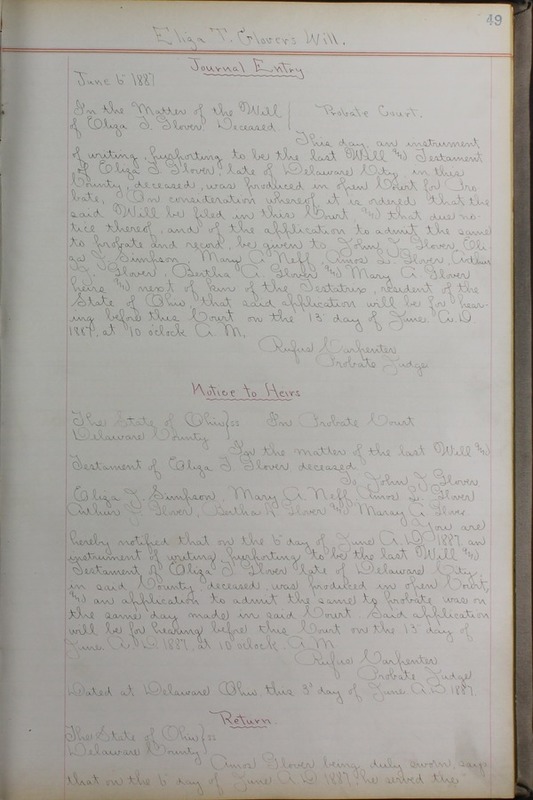 49
Eliza T. Glovers Will.
Journal Entry
June 6 1887
In the Matter of the Will
of Eliza T. Glover Deceased
Probate Court.
This day an instrument
of writing, purporting to be the last Will & Testament
of Eliza T. Glover, late of Delaware City, in this
County, deceased, was produced in open Court for Pro
bate, On consideration whereof it is ordered that the
said Will be filed in this Court, & that due no-
tice thereof, and of the application to admit the same
to probate and record, be given to John T. Glover, Eli
za J. Simpson, Mary A. Neff, Amos L. Glover, Arthur
Glover, Bertha A. Glover & Mary A. Glover
heirs & next of kin of the Testatrix, resident of the
State of Ohio that said application will be for hear-
ing before this Court on the 13 day of June A.D
1887, at 10 o'clock A.M.
Rufus Carpenter
Probate Judge
Notice to Heirs
The State of Ohio } ss In Probate Court
Delaware County
In the matter of the last Will &
Testament of Eliza T. Glover deceased
To John T Glover
Eliza J. Simpson, Mary A. Neff Amos L. Glover
Arthur Glover, Bertha Glover & Mary A. Glover
You are
hereby notified that on the 6 day of June A.D 1887 an
instrument of writing, purporting to be the last Will &
Testament of Eliza T Glover late of Delaware City
in said County deceased, was produced in open Court,
& an application to admit the same to probate was on
the same day made in said Court. Said application
will be for hearing before this Court on the 13 day of
June A.D 1887, at 10 oclock A.M
Rufus Carpenter
Probate Judge
Dated at Delaware Ohio, this day of June A.D 1887.
Return.
The State of Ohio } ss
Delaware County
Amos Glover being duly sworn, says
that on the 6 day of June A.D 1887, he served the